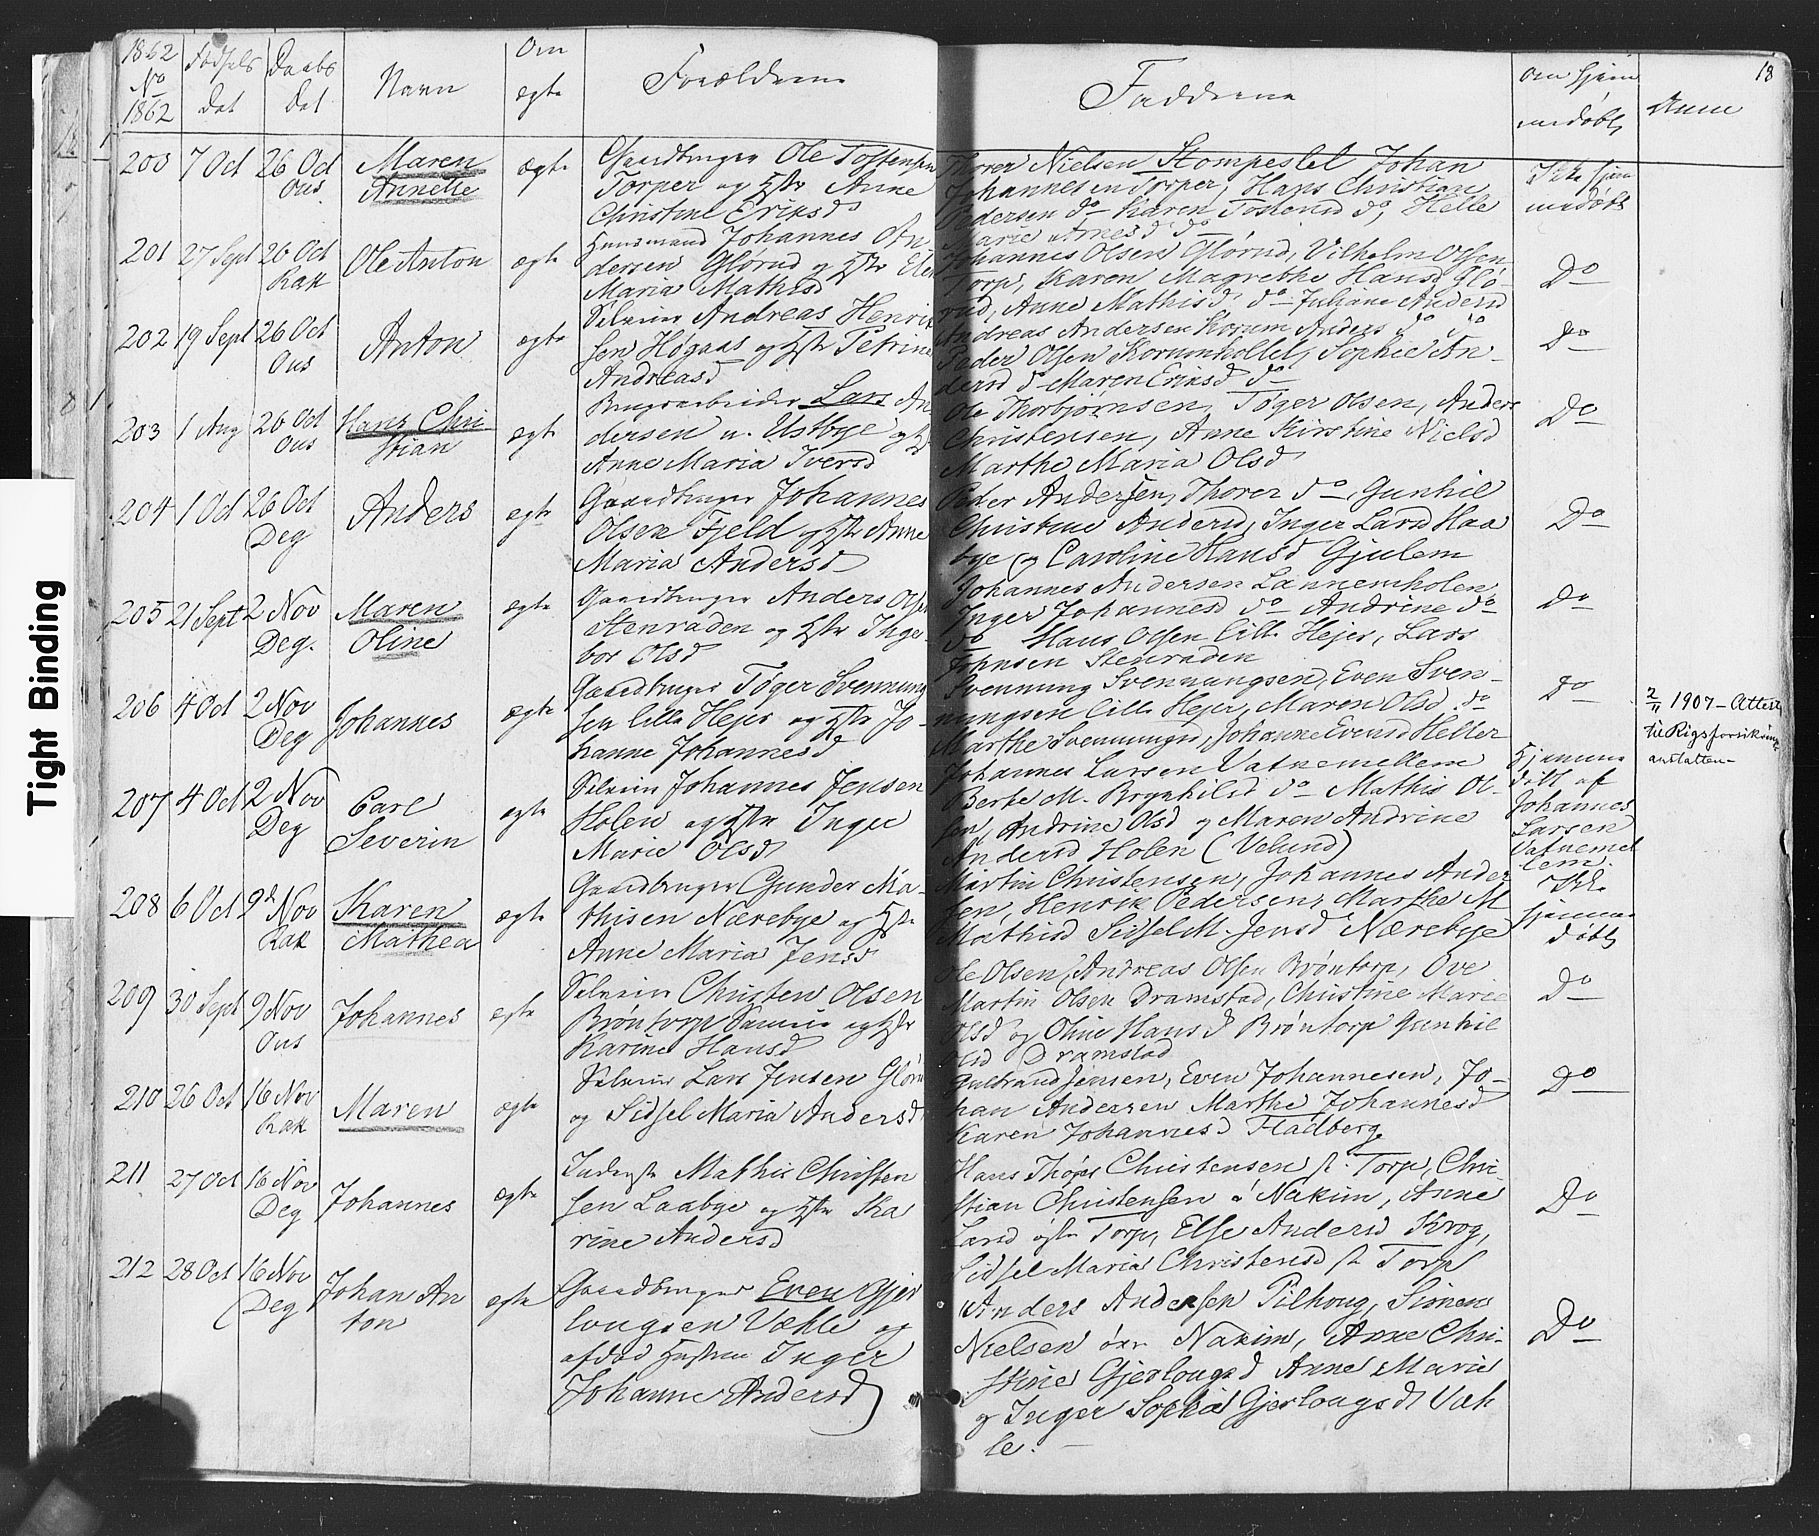 Tight Binding
18
1862
No
1862
Fødsels
dat
Daabs
Dat
Navn
Om
ægte
Forældrene
Fadderne
om hjem
medøbt
Anm
200 7 Oct 26 Oct Ous Maren Annette ægte
Gaardbruger Ole Tostensen
Torper og Hstr Anne
Christine Eriksd
Thorer Nielsen Stompeslet, Johan
Johannesen Torper, Hans Christian
Pedersen do Karen Tostensd do, Helle
Marie Arnesd do
Ikke hjem
medøbt
201 27 Sept 26 Oct Rak Ole Anton ægte
Huusmand Johannes An
dersen Glørud og Hstr Elen
Maria Mathisd
Johannes Olsen Glørud, Vilhelm Olsen
Torp, Karen Magrethe Hansd Glø-
rud, Anne Mathisd do Juliane Andersd
Do
202 19 Sept 26 Oct Ous Anton ægte
Selveier Andreas Henrik
sen Høgaas og Hstr Petrine
Andreasd
Andreas Andersen Korum Anders do do
Peder Olsen Korumhollet, Sophie An-
dersd do Maren Eriksd do
Do
203 1 Aug 26 Oct Ous Hans Chri
stian ægte
Brugsarbeider Lars An
dersen n. Ustbye og Hstr
Anne Maria Iversd
Ole Thorbjørnsen, Tøger Olsen, Anders
Christensen, Anne Kirstine Nielsd
Marthe Maria Olsd
Do
204 1 Oct 26 Oct Deg Anders ægte
Gaardbruger Johannes
Olsen Fjeld og Hstr Anne
Maria Andersd
Peder Andersen, Thorer do, Gunhil
Christine Andersd, Inger Larsd Haa
bye og Caroline Hansd Gjulem
Do
205 21 Sept 2 Nov Deg. Maren Oline ægte
Gaardbruger Anders Olsen
Stenraden og Hstr Inge-
bor Olsd
Johannes Andersen Lannemholen,
Inger Johannesd do Andrine do
do Hans Olsen lille Hejer, Lars
Johnsen Stenraden
Do
206 4 Oct 2 Nov Deg Johannes ægte
Gaardbruger Tøger Svennung
sen lille Hejer og Hstr Jo-
hanne Johannesd
Svennung Svennungsen, Even Sven-
nungsen lille Hejer, Maren Olsd do
Marthe Svennungsd, Johanne Evensd Heller
Do
2/11 1907 - Attest
til Rigsforsikrings
anstalten -
207 4 Oct 2 Nov Deg Carl
Severin ægte
Selveier Johannes Jensen
Holen og Hstr Inger
Marie Olsd
Johannes Larsen Vatnemellem
Berte M. Brynhilsd do Mathis Ol-
sen, Andrine Olsd og Maren Andrine
Andersd Holen (Velund)
Hjemme
døbt af
Johannes
Larsen
Vatnemel
lem.
208 6 Oct 9d Nov Rak Karen
Mathea ægte
Gaardbruger Gunder Ma-
thisen Nærebye og Hstr
Anne Maria Jensd
Martin Christensen, Johannes Ander
sen, Henrik Pedersen, Marthe M
Mathisd Sidsel M. Jensd Nærebye
Ikke
hjemme
døbt
209 30 Sept 9 Nov Ous Johannes ægte
Selveier Christen Olsen
Brøntorp og Hstr
Karine Hansd
Ole Olsen, Andreas Olsen Brøntorp, Ove
Martin Olsen Dramstad, Christine Marie
Olsd og Oline Hansd Brøntorp Gunhil
Olsd Dramstad
Do
210 26 Oct 16 Nov Rak Maren ægte
Selveier Lars Jensen Glørud
og Sidsel Maria Andersd
Gulbrand Jensen, Even Johannesen, Jo-
han Andersen Marthe Johannesd
Karen Johannesd Fladberg
Do
211 27 Oct 16 Nov Deg Johannes ægte
Inderste Mathis Christen
sen Laabye og Hstr Ka
rine Andersd
Hans Thøger Christensen st. Torp, Chri-
stian Christensen ø Nakim, Anne
Larsd øster Torp, Else Andersd Krog,
Sidsel Maria Christensd st Torp
Do
212 28 Oct 16 Nov Deg Johan An
ton ægte
Gaardbruger Even Gjer
lougsen Væhle og
afdød Hustru Inger
Johanne Andersd
Anders Andersen Pilhoug, Simen
Nielsen øvr Nakim, Anne Chri-
stine Gjerlougsd Anne Marie
og Inger Sophie Gjerlougsd Væh
le. -
Do